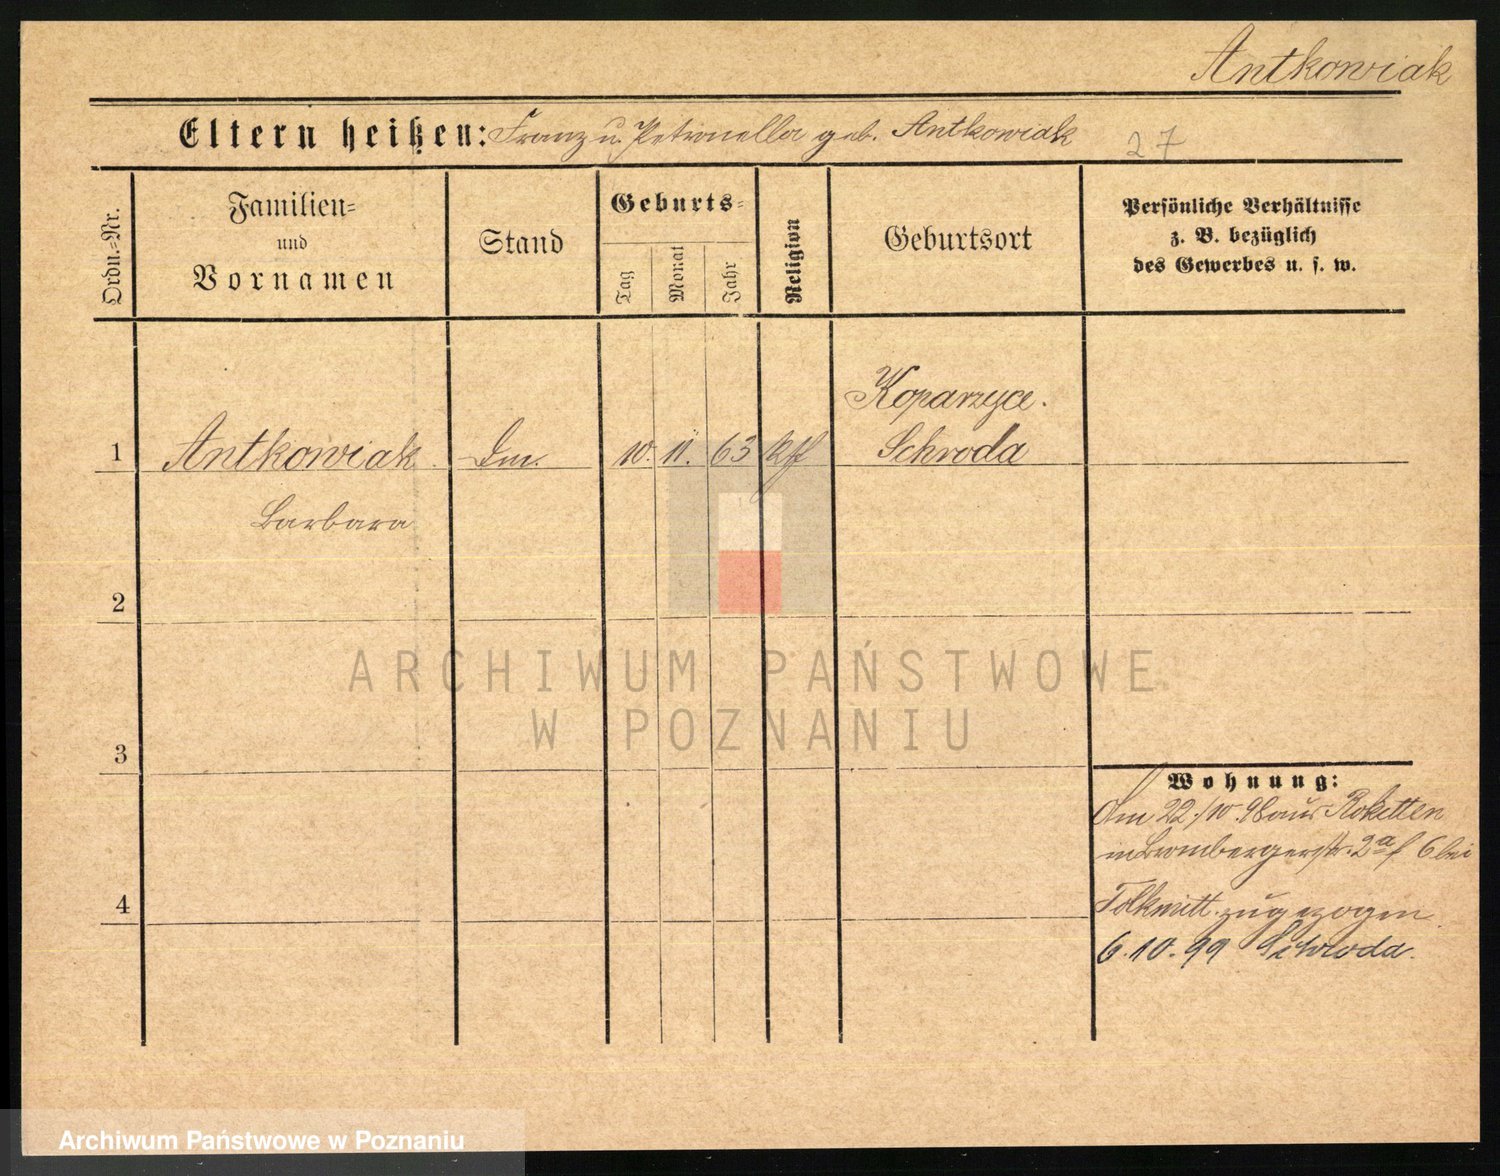 Antkowiak
Eltern heißen: Franz u. Petronella geb. Antkowiak 27
Ordn.=Nr.
Familien=
und
Vornamen
Stand
Geburts=
Tag
Monat
Jahr
Religion
Geburtsort
Persönliche Verhältnisse
z. B. bezüglich
des Gewerbes u. s. w.
Koparzyce.
1 Antkowiak Dm. 10. 11. 63 kth Schroda
Barbara
2
3
4
Wohnung:
Am 22./10. 98 aus Roketten
in Brombergerstr. 2a f 6 bei
Tolkmitt zugezogen
6.10.99 Schroda.
ARCHIWUM PAŃSTWOWE
W POZNANIU
Archiwum Państwowe w Poznaniu